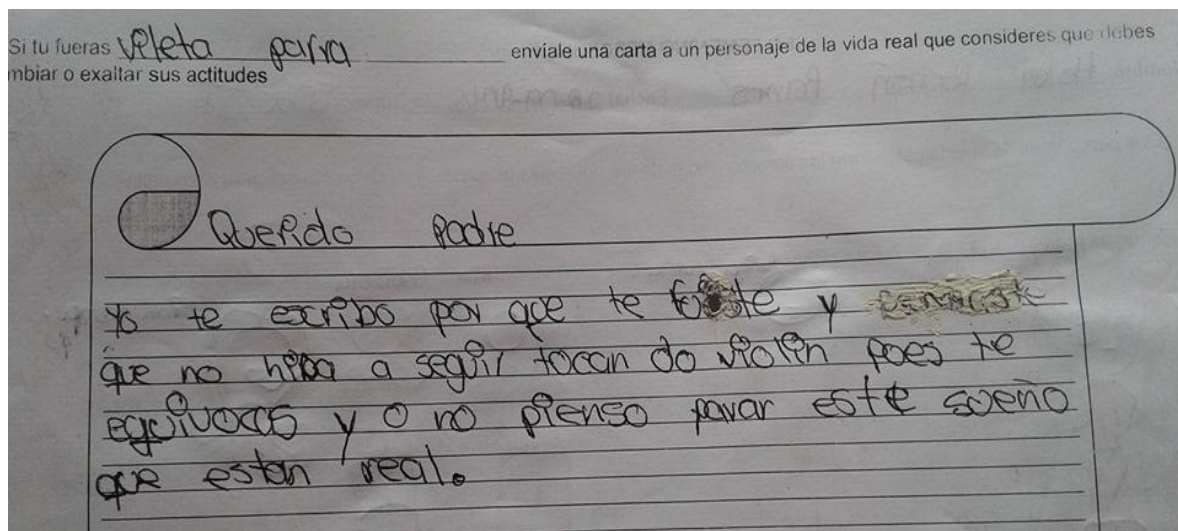 Si tu fueras violeta parra enviale una carta a un personaje de la vida real que consideres que debes
mbiar o exaltar sus actitudes
Querido padre
Yo te escribo por que te fuiste y
que no hiba a seguir tocan do violin pues te
equivocas y o no pienso parar este sueño
que estan real.